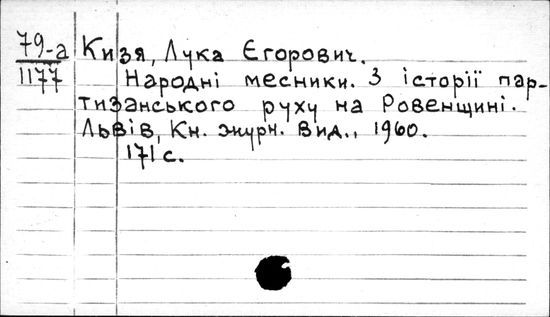 79-а
1177
Кизя, Лука Єгорович.
Народні месники. З історії пар-
тизанського руху на Ровенщині.
Львів, Кн. журн. Вид., 1960.
171 с.